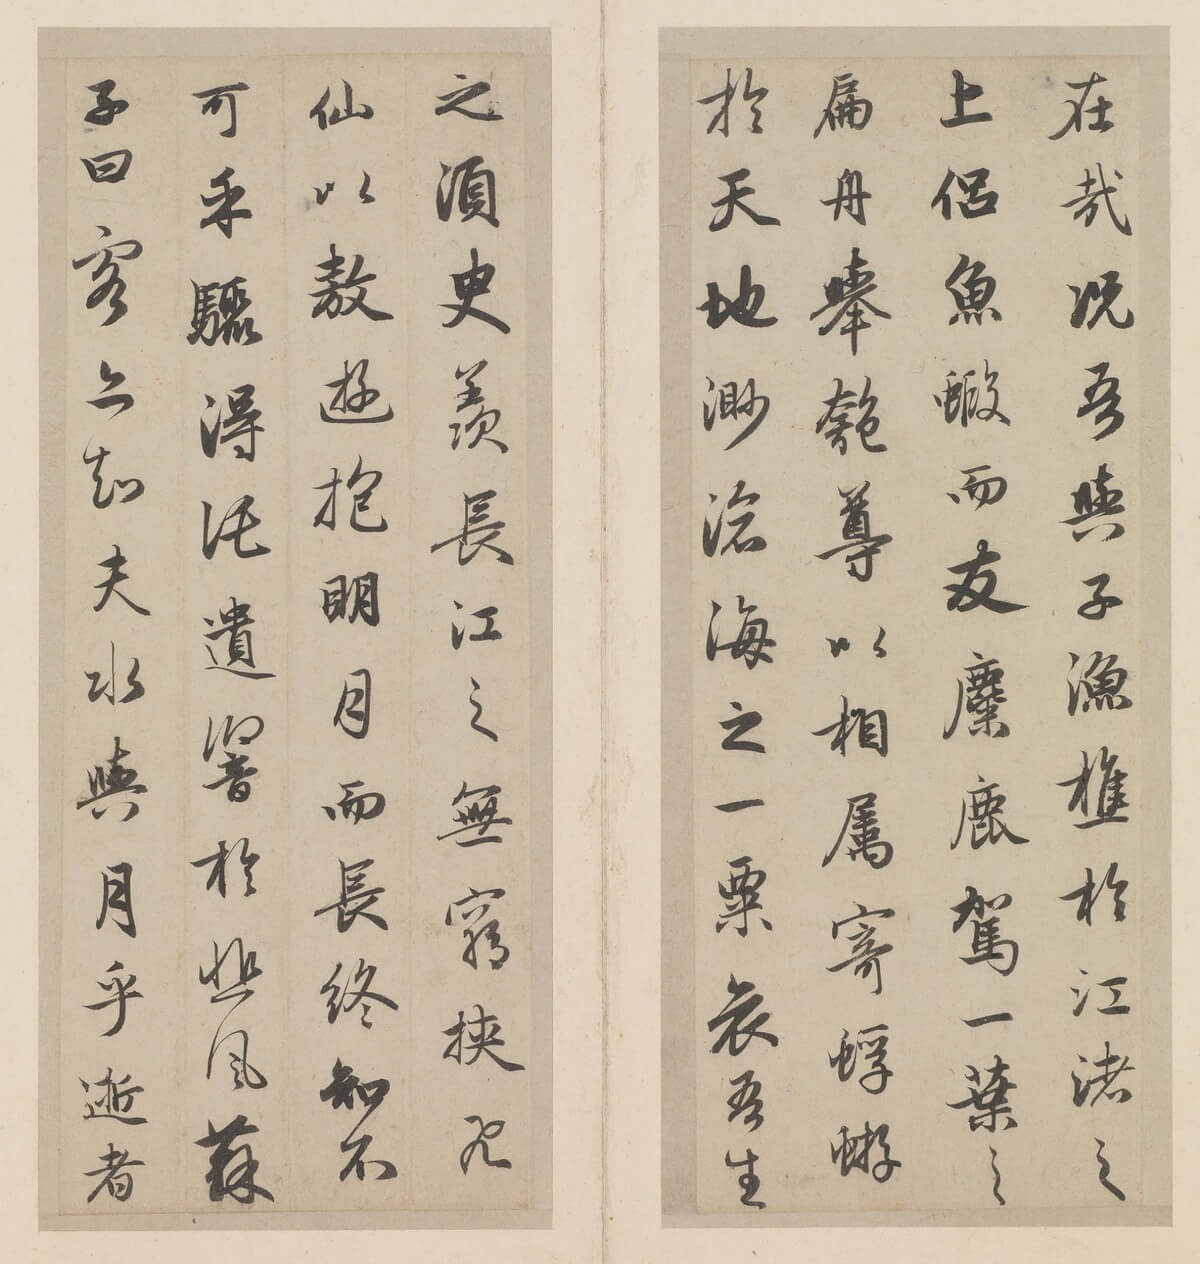 在哉况吾與子漁樵於江渚之
上侣魚蝦而友麋鹿駕一葉之
扁舟舉匏尊以相属寄蜉蝣
於天地渺滄海之一粟哀吾生
之須臾羨長江之無窮挾飛
仙以敖遊抱明月而長終知不
可乎驟得託遺響於悲風蘇
子曰客亦知夫水與月乎逝者